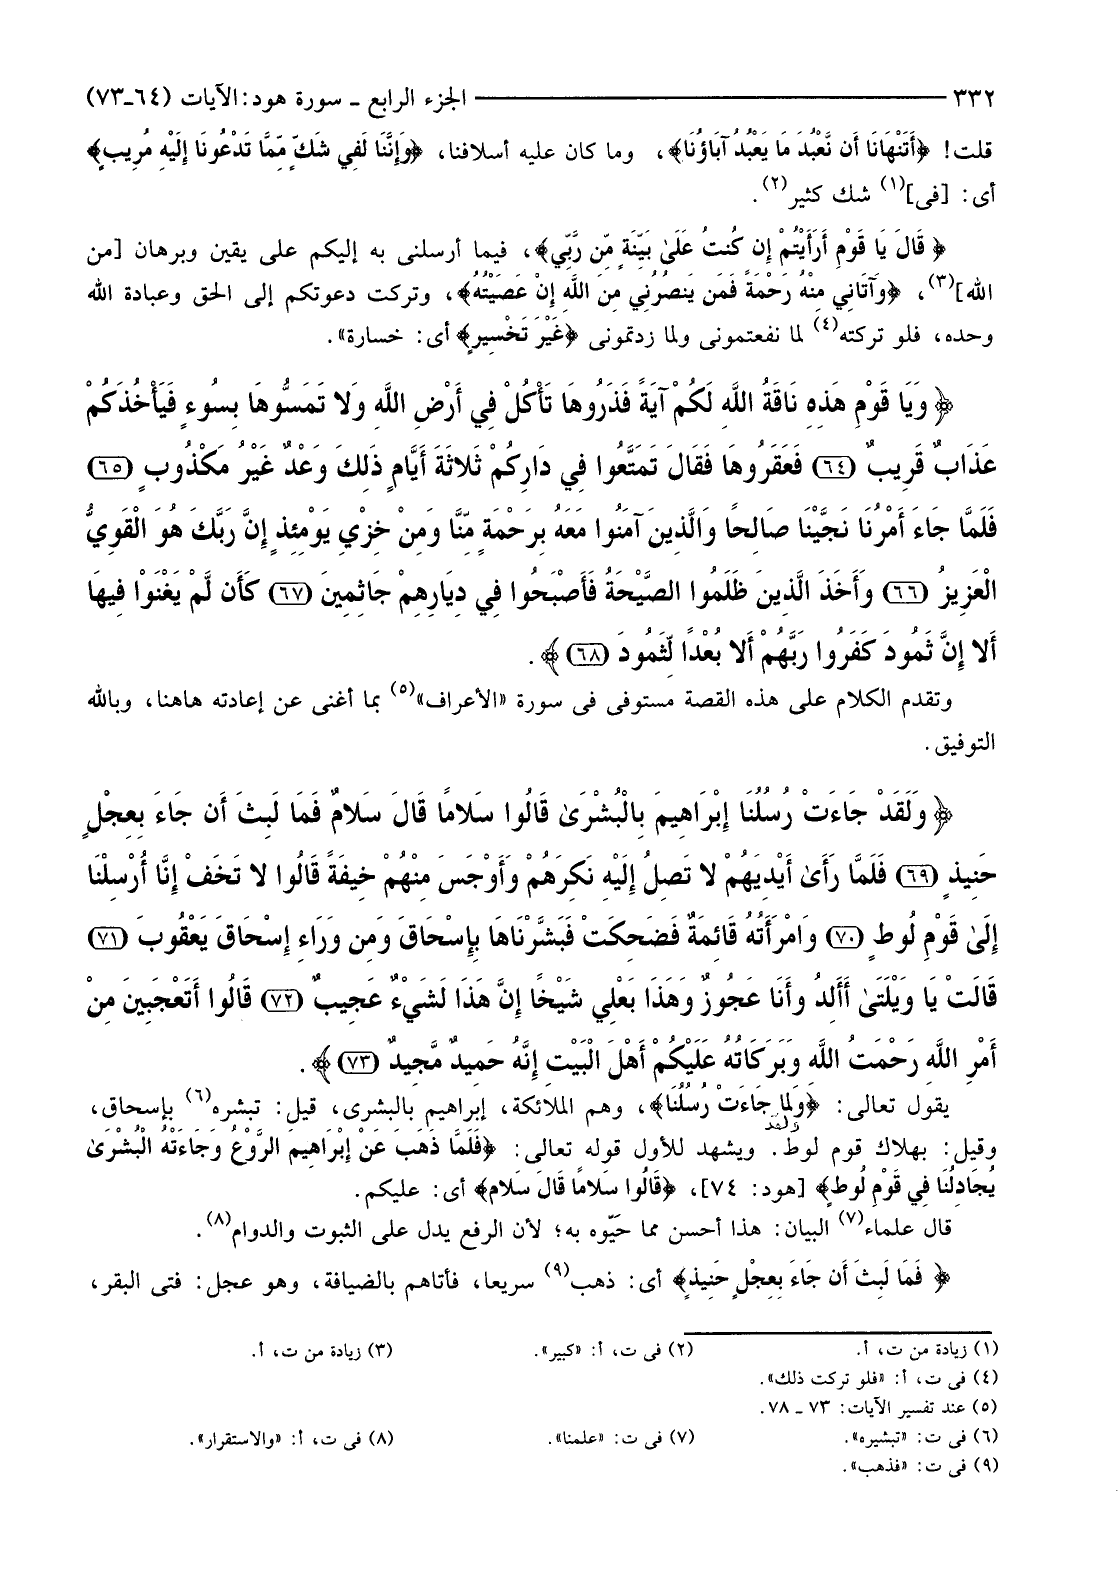 ٣٣٢ ـــــــــ الجزء الرابع ـ سورة هود: الآيات (٦٤ـ٧٣)
قلت! ﴿أَتَنْهَانَا أَن نَّعْبُدَ مَا يَعْبُدُ آبَاؤُنَا﴾، وما كان عليه أسلافنا، ﴿وَإِنَّنَا لَفِي شَكٍّ مِّمَّا تَدْعُونَا إِلَيْهِ مُرِيبٍ﴾
أى: [فى](١) شك كثير(٢).
﴿ قَالَ يَا قَوْمِ أَرَأَيْتُمْ إِن كُنتُ عَلَىٰ بَيِّنَةٍ مِّن رَّبِّي﴾، فيما أرسلنى به إليكم على يقين وبرهان [من
الله](٣)، ﴿وَآتَانِي مِنْهُ رَحْمَةً فَمَن يَنصُرُنِي مِنَ اللَّهِ إِنْ عَصَيْتُهُ﴾، وتركت دعوتكم إلى الحق وعبادة الله
وحده، فلو تركته(٤) لما نفعتمونى ولما زدتمونى ﴿غَيْرَ تَخْسِيرٍ﴾ أى: خسارة».
﴿ وَيَا قَوْمِ هَذِهِ نَاقَةُ اللَّهِ لَكُمْ آيَةً فَذَرُوهَا تَأْكُلْ فِي أَرْضِ اللَّهِ وَلا تَمَسُّوهَا بِسُوءٍ فَيَأْخُذَكُمْ
عَذَابٌ قَرِيبٌ (٦٤) فَعَقَرُوهَا فَقَالَ تَمَتَّعُوا فِي دَارِكُمْ ثَلاثَةَ أَيَّامٍ ذَلِكَ وَعْدٌ غَيْرُ مَكْذُوبٍ (٦٥)
فَلَمَّا جَاءَ أَمْرُنَا نَجَّيْنَا صَالِحًا وَالَّذِينَ آمَنُوا مَعَهُ بِرَحْمَةٍ مِّنَّا وَمِنْ خِزْيِ يَوْمِئِذٍ إِنَّ رَبَّكَ هُوَ الْقَوِيُّ
الْعَزِيزُ (٦٦) وَأَخَذَ الَّذِينَ ظَلَمُوا الصَّيْحَةُ فَأَصْبَحُوا فِي دِيَارِهِمْ جَاثِمِينَ (٦٧) كَأَن لَّمْ يَغْنَوْا فِيهَا
أَلا إِنَّ ثَمُودَ كَفَرُوا رَبَّهُمْ أَلا بُعْدًا لِّثَمُودَ (٦٨) ﴾.
وتقدم الكلام على هذه القصة مستوفى فى سورة «الأعراف»(٥) بما أغنى عن إعادته هاهنا، وبالله
التوفيق.
﴿ وَلَقَدْ جَاءَتْ رُسُلُنَا إِبْرَاهِيمَ بِالْبُشْرَىٰ قَالُوا سَلامًا قَالَ سَلامٌ فَمَا لَبِثَ أَن جَاءَ بِعِجْلٍ
حَنِيذٍ (٦٩) فَلَمَّا رَأَىٰ أَيْدِيَهُمْ لا تَصِلُ إِلَيْهِ نَكِرَهُمْ وَأَوْجَسَ مِنْهُمْ خِيفَةً قَالُوا لا تَخَفْ إِنَّا أُرْسِلْنَا
إِلَىٰ قَوْمِ لُوطٍ (٧٠) وَامْرَأَتُهُ قَائِمَةٌ فَضَحِكَتْ فَبَشَّرْنَاهَا بِإِسْحَاقَ وَمِن وَرَاءِ إِسْحَاقَ يَعْقُوبَ (٧١)
قَالَتْ يَا وَيْلَتَىٰ أَأَلِدُ وَأَنَا عَجُوزٌ وَهَذَا بَعْلِي شَيْخًا إِنَّ هَذَا لَشَيْءٌ عَجِيبٌ (٧٢) قَالُوا أَتَعْجَبِينَ مِنْ
أَمْرِ اللَّهِ رَحْمَتُ اللَّهِ وَبَرَكَاتُهُ عَلَيْكُمْ أَهْلَ الْبَيْتِ إِنَّهُ حَمِيدٌ مَّجِيدٌ (٧٣) ﴾.
يقول تعالى: ﴿وَلَمَا جَاءَتْ رُسُلُنَا﴾، وهم الملائكة، إبراهيم بالبشرى، قيل: تبشره(٦) بإسحاق،
ولقد
وقيل: بهلاك قوم لوط. ويشهد للأول قوله تعالى: ﴿فَلَمَّا ذَهَبَ عَنْ إِبْرَاهِيمَ الرَّوْعُ وَجَاءَتْهُ الْبُشْرَىٰ
يُجَادِلُنَا فِي قَوْمِ لُوطٍ﴾ [هود: ٧٤]، ﴿قَالُوا سَلامًا قَالَ سَلام﴾ أى: عليكم.
قال علماء(٧) البيان: هذا أحسن مما حَيّوه به؛ لأن الرفع يدل على الثبوت والدوام(٨).
﴿ فَمَا لَبِثَ أَن جَاءَ بِعِجْلٍ حَنِيذٍ﴾ أى: ذهب(٩) سريعا، فأتاهم بالضيافة، وهو عجل: فتى البقر،
(١) زيادة من ت، أ. (٢) فى ت، أ: «كبير». (٣) زيادة من ت، أ.
(٤) فى ت، أ: «فلو تركت ذلك».
(٥) عند تفسير الآيات: ٧٣ ـ ٧٨.
(٦) فى ت: «تبشيره». (٧) فى ت: «علمنا». (٨) فى ت، أ: «والاستقرار».
(٩) فى ت: «فذهب».